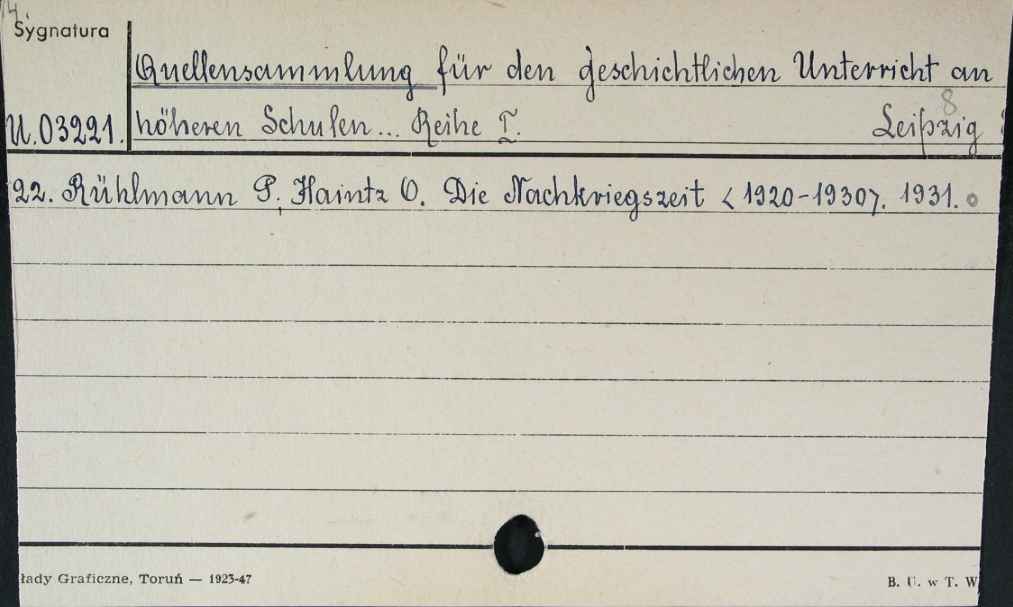 14.
Sygnatura
Quellensammlung für den geschichtlichen Unterricht an
8
U.03221. höheren Schulen... Reihe I. Leipzig
22. Rühlmann P., Haintz O. Die Nachkriegszeit <1920-1930>. 1931.
łady Graficzne, Toruń — 1923-47
B. U. w T. W